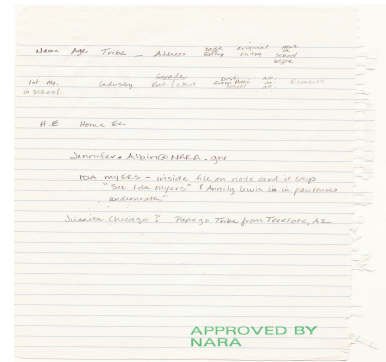 Name Age Tribe - Address date entry original entry work in school before
lst no. in school Industry Grades Ent / Climb Dist. from Home School no. in Remarks
H.E Home Ec.
Jennifer.Albin@NARA.gov
IDA MYERS - inside file on note card it says
"See Ida Myers" & Lewis is in
underneath"
Juanita Chicago? Papago Tribe from Topelote, AZ
APPROVED BY
NARA